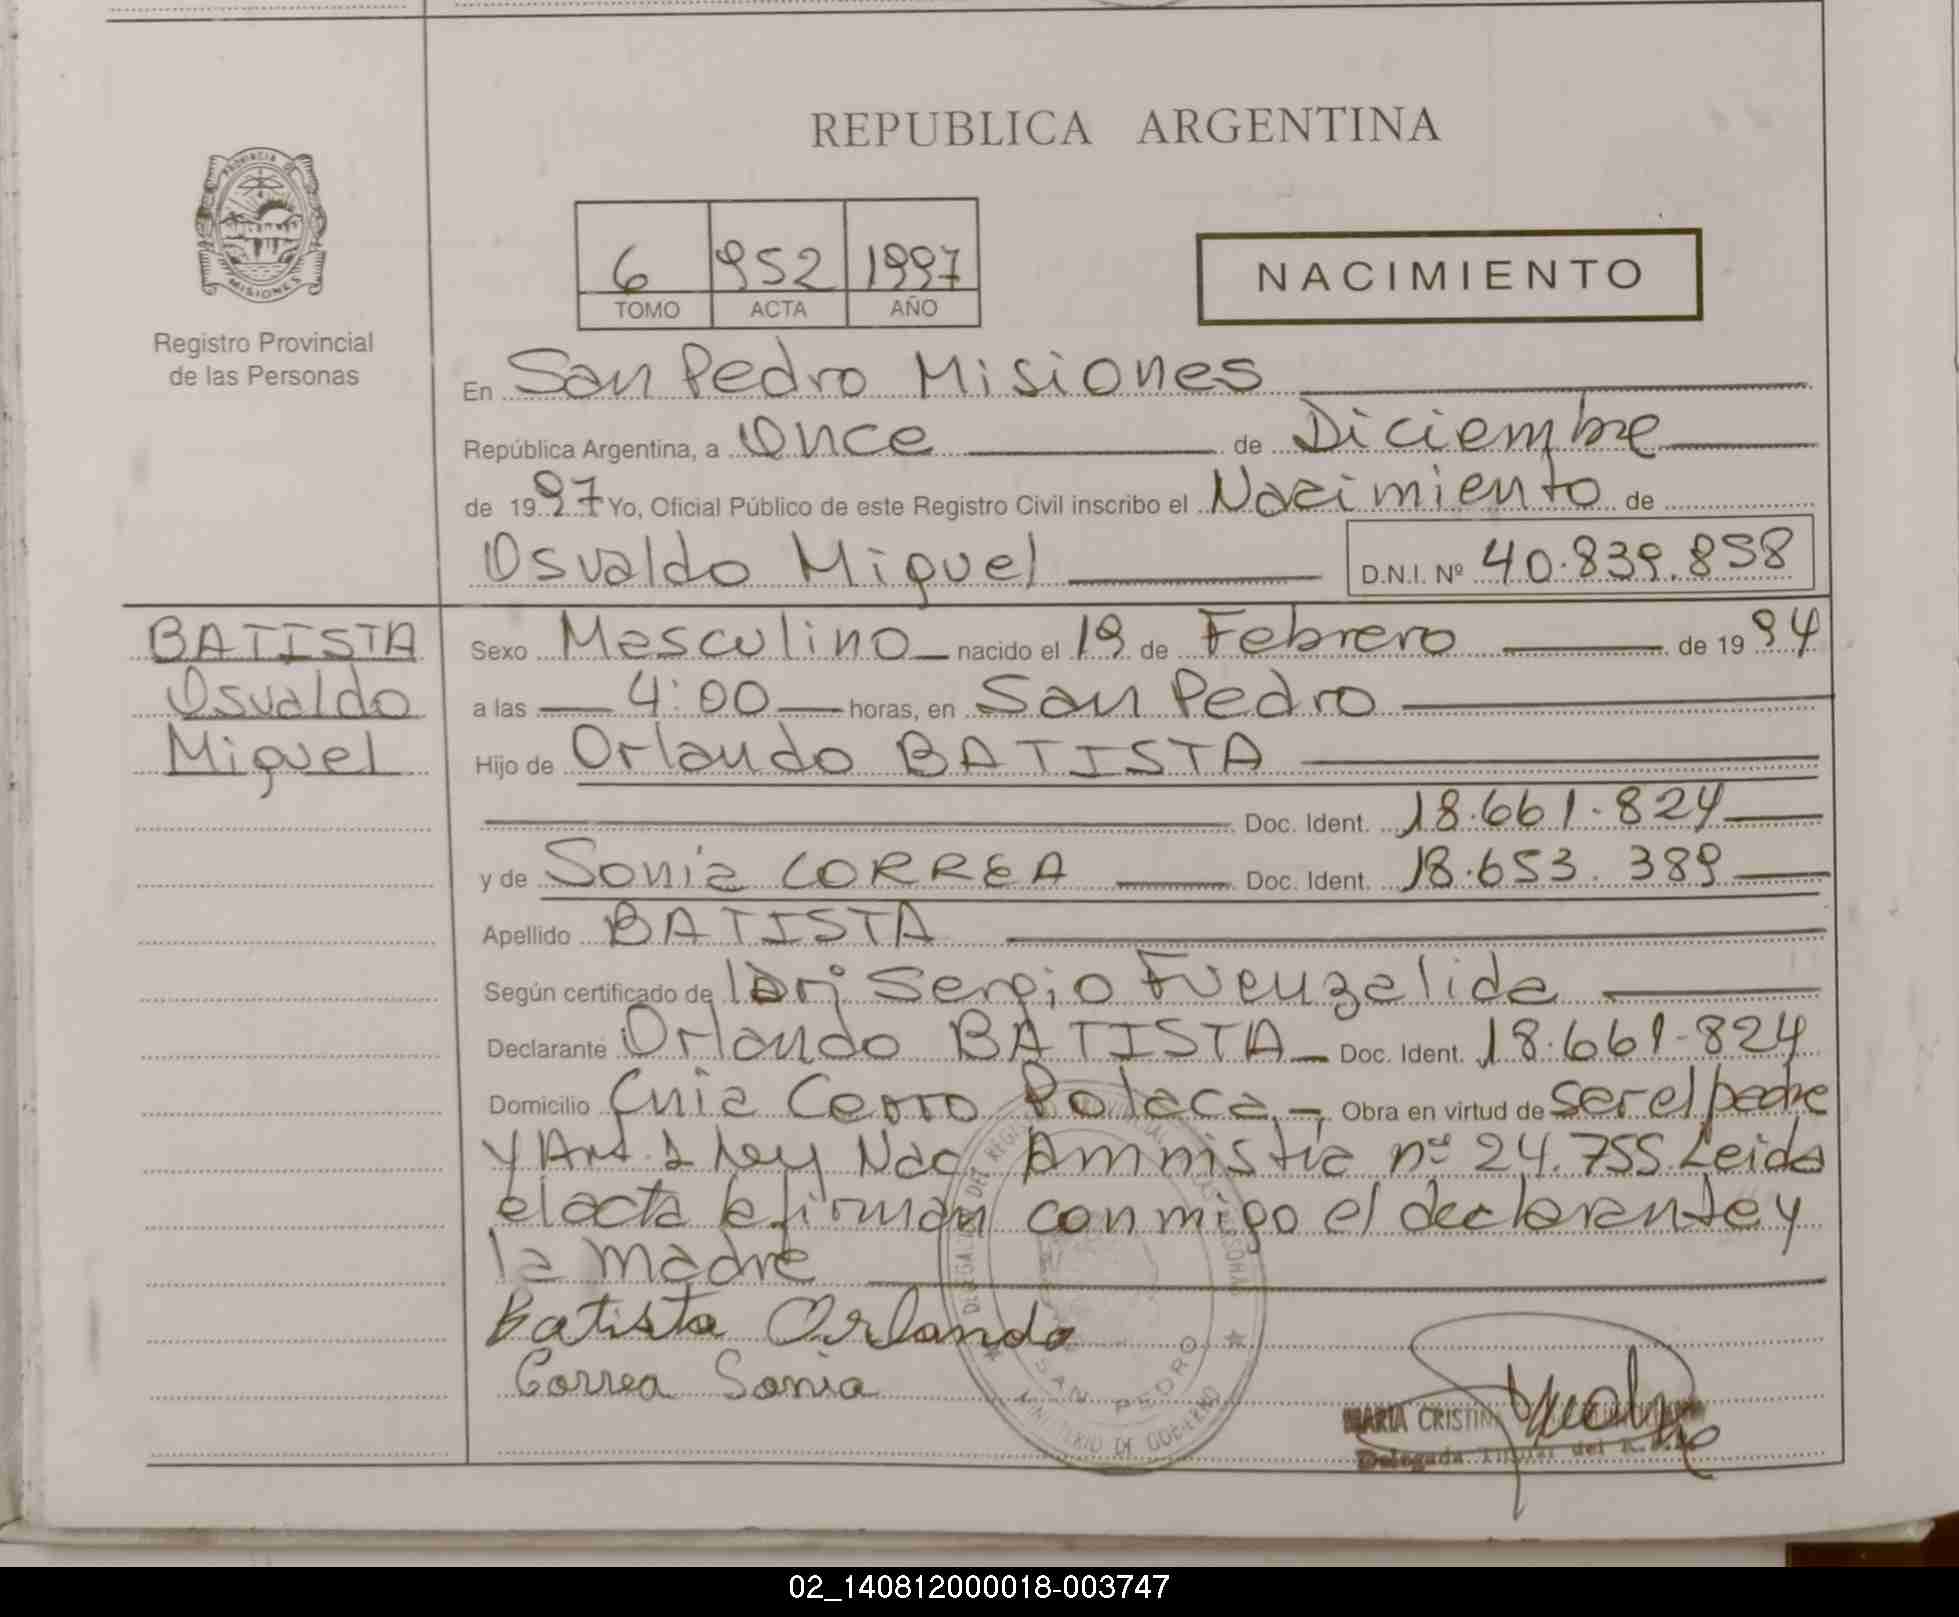 REPUBLICA ARGENTINA
PROVINCIA DE MISIONES
Registro Provincial
de las Personas
6 952 1997
TOMO ACTA AÑO
NACIMIENTO
En San Pedro Misiones
República Argentina, a Once de Diciembre
de 1997 Yo, Oficial Público de este Registro Civil inscribo el Nacimiento de
Osvaldo Miguel D.N.I. Nº 40.839.858
BATISTA
Osvaldo
Miguel
Sexo Masculino nacido el 19 de Febrero de 1994
a las 4:00 horas, en San Pedro
Hijo de Orlando BATISTA
Doc. Ident. 18.661.824
y de Sonia CORREA Doc. Ident. 18.653.389
Apellido BATISTA
Según certificado de Sergio Fuenzalida
Declarante Orlando BATISTA Doc. Ident. 18.661.824
Domicilio Cnia Cerro Polaca.- Obra en virtud de ser el padre
y Art. 1 ley Nac Amnistia nº 24.755 Leida
el acta la firman conmigo el declarante y
la madre
Batista Orlando
Correa Sonia
SAN PEDRO
MINISTERIO DE GOBIERNO
MARIA CRISTINA
Delegada Titular del
02_140812000018-003747